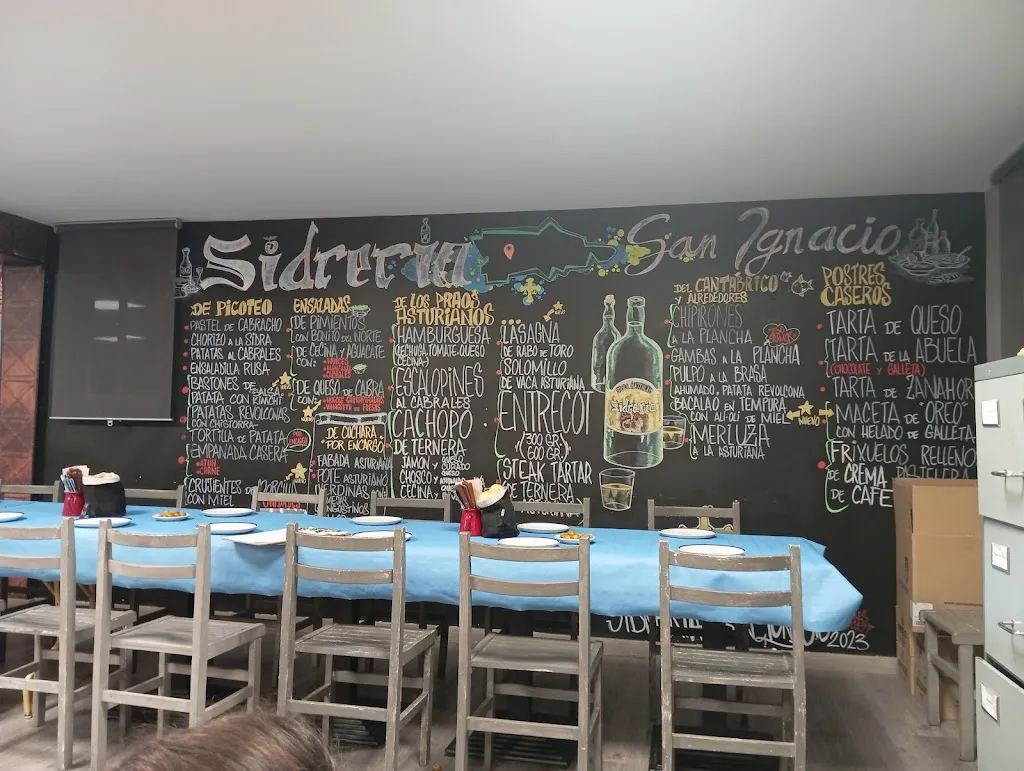 Sidrería San Ignacio
DE PICOTEO
PASTEL DE CABRACHO
CHORIZO A LA SIDRA
PATATAS AL CABRALES
ENSALADILLA RUSA
BASTONES DE
PATATA CON SALSA RANCH
PATATAS REVOLCONAS
CON CHISTORRA
TORTILLA DE PATATA
EMPANADA CASERA
ATUN
CARNE
CRUJIENTES DE MORCILLA
CON MIEL
ENSALADAS
DE PIMIENTOS
CON BONITO DEL NORTE
DE CECINA Y AGUACATE
CON:
DE QUESO DE CABRA
CON:
DE CUCHARA
POR ENCARGO
FABADA ASTURIANA
POTE ASTURIANO
DE LOS PRAOS
ASTURIANOS
HAMBURGUESA
(LECHUGA, TOMATE, QUESO
CECINA)
ESCALOPINES
AL CABRALES
CACHOPO
DE TERNERA
JAMON Y
CHOSCO Y
CECINA Y
LASAGNA
DE RABO DE TORO
SOLOMILLO
DE VACA ASTURIANA
ENTRECOT
(300 GR)
(600 GR)
STEAK TARTAR
DE TERNERA
ASTURIANA
Sidrería
DEL CANTÁBRICO
Y ALREDEDORES
CHIPIRONES
A LA PLANCHA
GAMBAS A LA PLANCHA
PULPO A LA BRASA
AHUMADO, PATATA REVOLCONA
BACALAO EN TEMPURA
CON ALI OLI DE MIEL
NUEVO
MERLUZA
A LA ASTURIANA
POSTRES
CASEROS
TARTA DE QUESO
TARTA DE LA ABUELA
(CHOCOLATE Y GALLETA)
TARTA DE ZANAHOR
MACETA DE "OREO"
CON HELADO DE GALLETA
FRIXUELOS RELLENO
DE CREMA
DE CAFE
2023